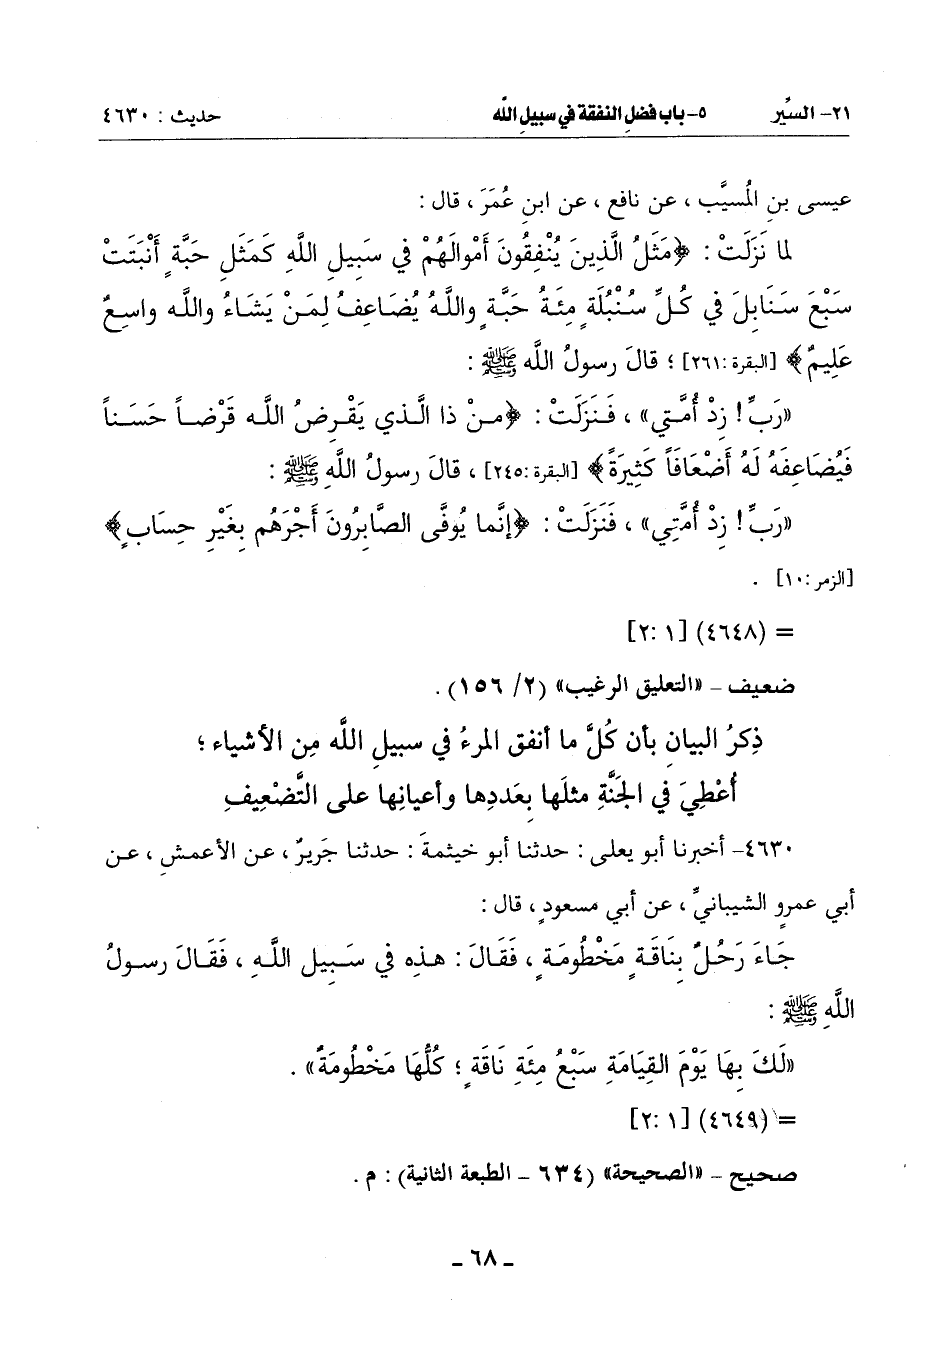 ٢١- السِّير ٥- باب فضل النفقة في سبيل اللَّه حديث : ٤٦٣٠
عيسى بنِ المُسيَّب ، عن نافع ، عن ابنِ عُمَرَ ، قال :
لما نَزَلَتْ : ﴿مَثَلُ الَّذِينَ يُنْفِقُونَ أَمْوالَهُمْ في سَبِيلِ اللَّهِ كَمَثَلِ حَبَّةٍ أَنْبَتَتْ
سَبْعَ سَنَابِلَ في كُلِّ سُنْبُلَةٍ مِئَةُ حَبَّةٍ واللَّهُ يُضَاعِفُ لِمَنْ يَشَاءُ واللَّه واسِعٌ
عَلِيمٌ﴾ [البقرة:٢٦١] ؛ قالَ رسولُ اللَّه ﷺ :
«رَبِّ! زِدْ أُمَّتي» ، فَنَزَلَتْ : ﴿مـنْ ذا الَّـذي يَقْـرِضُ اللَّـه قَرْضـاً حَسَـناً
فَيُضَاعِفَهُ لَهُ أَضْعَافَاً كَثِيرَةً﴾ [البقرة:٢٤٥] ، قالَ رسولُ اللَّهِ ﷺ :
«رَبِّ! زِدْ أُمَّتِي» ، فَنَزَلَتْ : ﴿إنَّما يُوفَّى الصَّابِرُونَ أَجْرَهُم بِغَيْرِ حِسَابٍ﴾
[الزمر:١٠] .
= (٤٦٤٨) [٢:١]
ضعيف - «التعليق الرغيب» (٢/ ١٥٦).
ذِكرُ البيانِ بأن كُلَّ ما أنفق المرءُ في سبيلِ اللَّه مِن الأشياء ؛
أُعْطِيَ في الجَنَّةِ مثلَها بِعَددِها وأعيانِها على التَّضْعِيفِ
٤٦٣٠- أخبرنا أبو يعلى : حدثنا أبو خيثمةَ : حدثنا جَريرٌ ، عن الأعمشِ ، عـن
أبي عمرٍو الشيبانيِّ ، عن أبي مسعودٍ ، قال :
جَاءَ رَجُلٌ بِنَاقَةٍ مَخْطُومَةٍ ، فَقَالَ : هـذِه في سَـبِيلِ اللَّـهِ ، فَقَـالَ رسـولُ
اللَّهِ ﷺ :
«لَكَ بِهَا يَوْمَ القِيَامَةِ سَبْعُ مِئَةِ نَاقَةٍ ؛ كُلُّهَا مَخْطُومَةٌ» .
= (٤٦٤٩) [٢:١]
صحيح - «الصحيحة» (٦٣٤ - الطبعة الثانية) : م .
- ٦٨ -